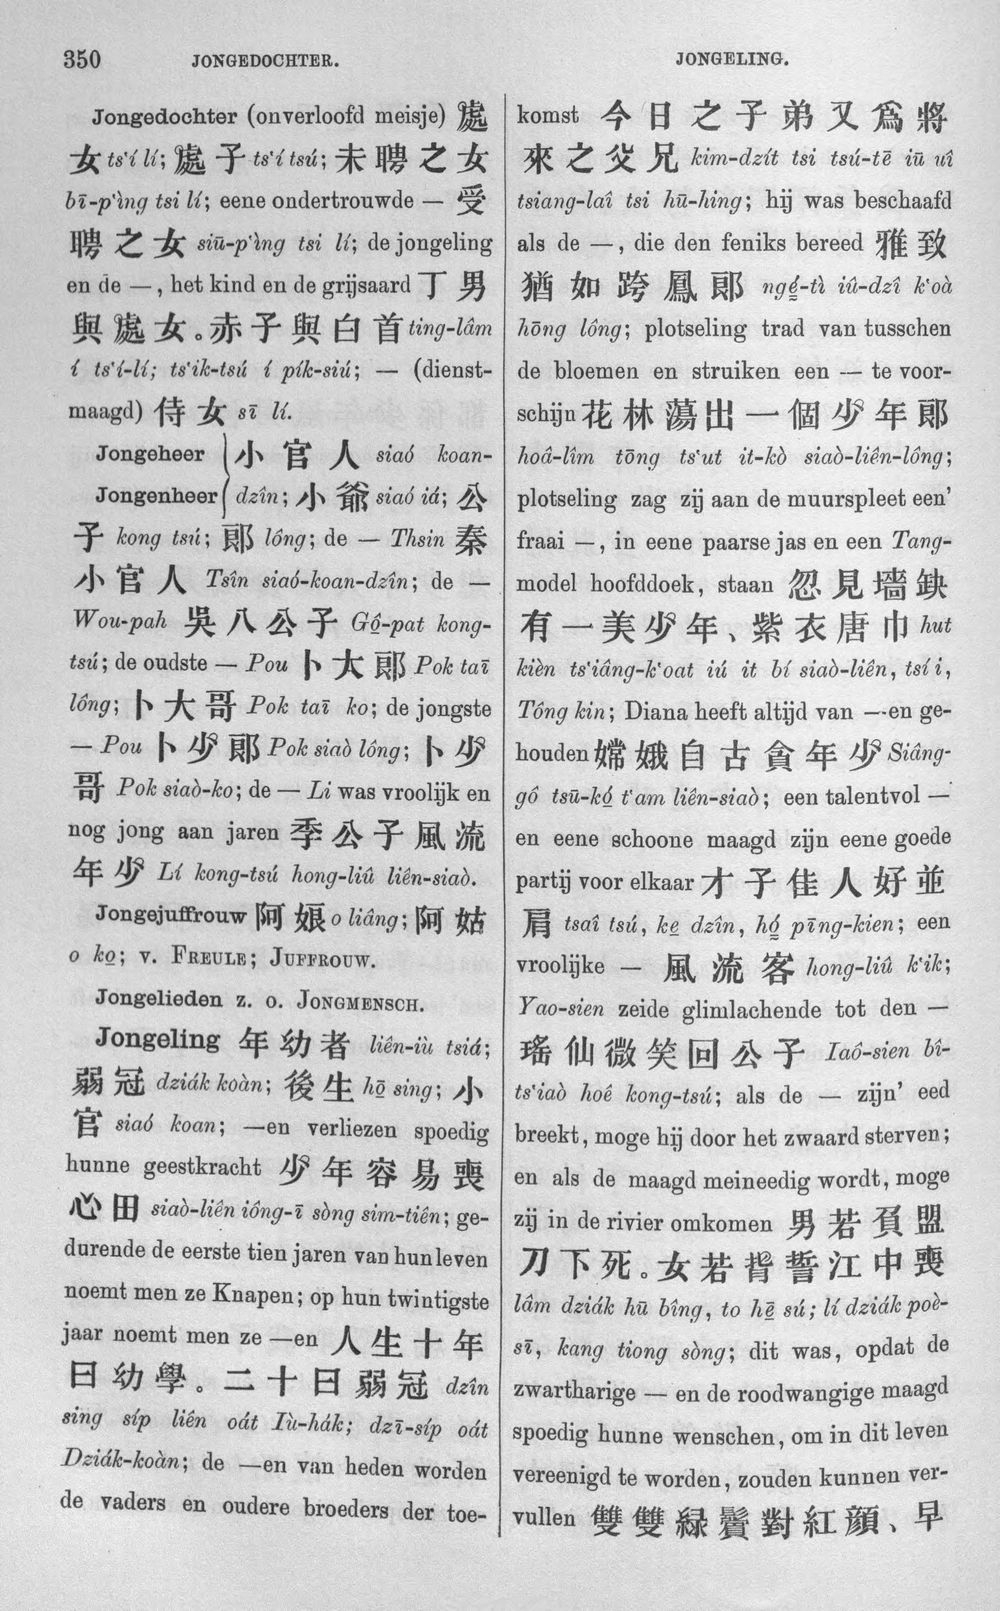 350 JONGEDOCHTER. JONGELING.
Jongedochter (onverloofd meisje) 處
女 ts'í lí; 處子 ts'í tsú; 未聘之女
bī-p'ìng tsi lí; eene ondertrouwde — 受
聘之女 siū-p'ìng tsi lí; de jongeling
en de —, het kind en de grijsaard 丁男
與處女。赤子與白首 ting-lâm
í ts'í-lí; ts'ik-tsú í pík-siú; — (dienst-
maagd) 侍女 sī lí.
Jongeheer 小官人 siaó koan-
Jongenheer dzîn; 小爺 siaó iá; 公
子 kong tsú; 郞 lông; de — Thsin 秦
小官人 Tsîn siaó-koan-dzîn; de —
Wou-pah 吳八公子 Gô-pat kong-
tsú; de oudste — Pou 卜大郞 Pok taī
lông; 卜大哥 Pok taī ko; de jongste
— Pou 卜少郞 Pok siaò lông; 卜少
哥 Pok siaò-ko; de — Li was vroolijk en
nog jong aan jaren 季公子風流
年少 Lí kong-tsú hong-liû liên-siaò.
Jongejuffrouw 阿娘 o liâng; 阿姑
o ko; v. FREULE; JUFFROUW.
Jongelieden z. o. JONGMENSCH.
Jongeling 年幼者 liên-iù tsiá;
弱冠 dziák koàn; 後生 hō sing; 小
官 siaó koan; —en verliezen spoedig
hunne geestkracht 少年容易喪
心田 siaò-liên iông-ī sòng sim-tiên; ge-
durende de eerste tien jaren van hun leven
noemt men ze Knapen; op hun twintigste
jaar noemt men ze —en 人生十年
曰幼學。二十曰弱冠 dzîn
sing síp liên oát Iù-hák; dzī-síp oát
Dziák-koàn; de —en van heden worden
de vaders en oudere broeders der toe-
komst 今日之子弟又爲將
來之父兄 kim-dzít tsi tsú-tē iū uî
tsiang-laî tsi hū-hing; hij was beschaafd
als de —, die den feniks bereed 雅致
猶如跨鳳郞 ngé-tì iû-dzî k'oà
hōng lông; plotseling trad van tusschen
de bloemen en struiken een — te voor-
schijn 花林蕩出一個少年郞
hoâ-lîm tōng ts'ut it-kò siaò-liên-lông;
plotseling zag zij aan de muurspleet een'
fraai —, in eene paarse jas en een Tang-
model hoofddoek, staan 忽見墻缺
有一美少年、紫衣唐巾 hut
kièn ts'iâng-k'oat iú it bí siaò-liên, tsí i,
Tông kin; Diana heeft altijd van —en ge-
houden 嫦娥自古貪年少 Siâng-
gô tsū-kó t'am liên-siaò; een talentvol —
en eene schoone maagd zijn eene goede
partij voor elkaar 才子佳人好並
肩 tsaî tsú, ke dzîn, hó pīng-kien; een
vroolijke — 風流客 hong-liû k'ik;
Yao-sien zeide glimlachende tot den —
瑤仙微笑回公子 Iaô-sien bî-
ts'iaò hoê kong-tsú; als de — zijn' eed
breekt, moge hij door het zwaard sterven;
en als de maagd meineedig wordt, moge
zij in de rivier omkomen 男若負盟
刀下死。女若背誓江中喪
lâm dziák hū bîng, to hē sú; lí dziák poè-
sī, kang tiong sòng; dit was, opdat de
zwartharige — en de roodwangige maagd
spoedig hunne wenschen, om in dit leven
vereenigd te worden, zouden kunnen ver-
vullen 雙雙緑鬢對紅顔、早